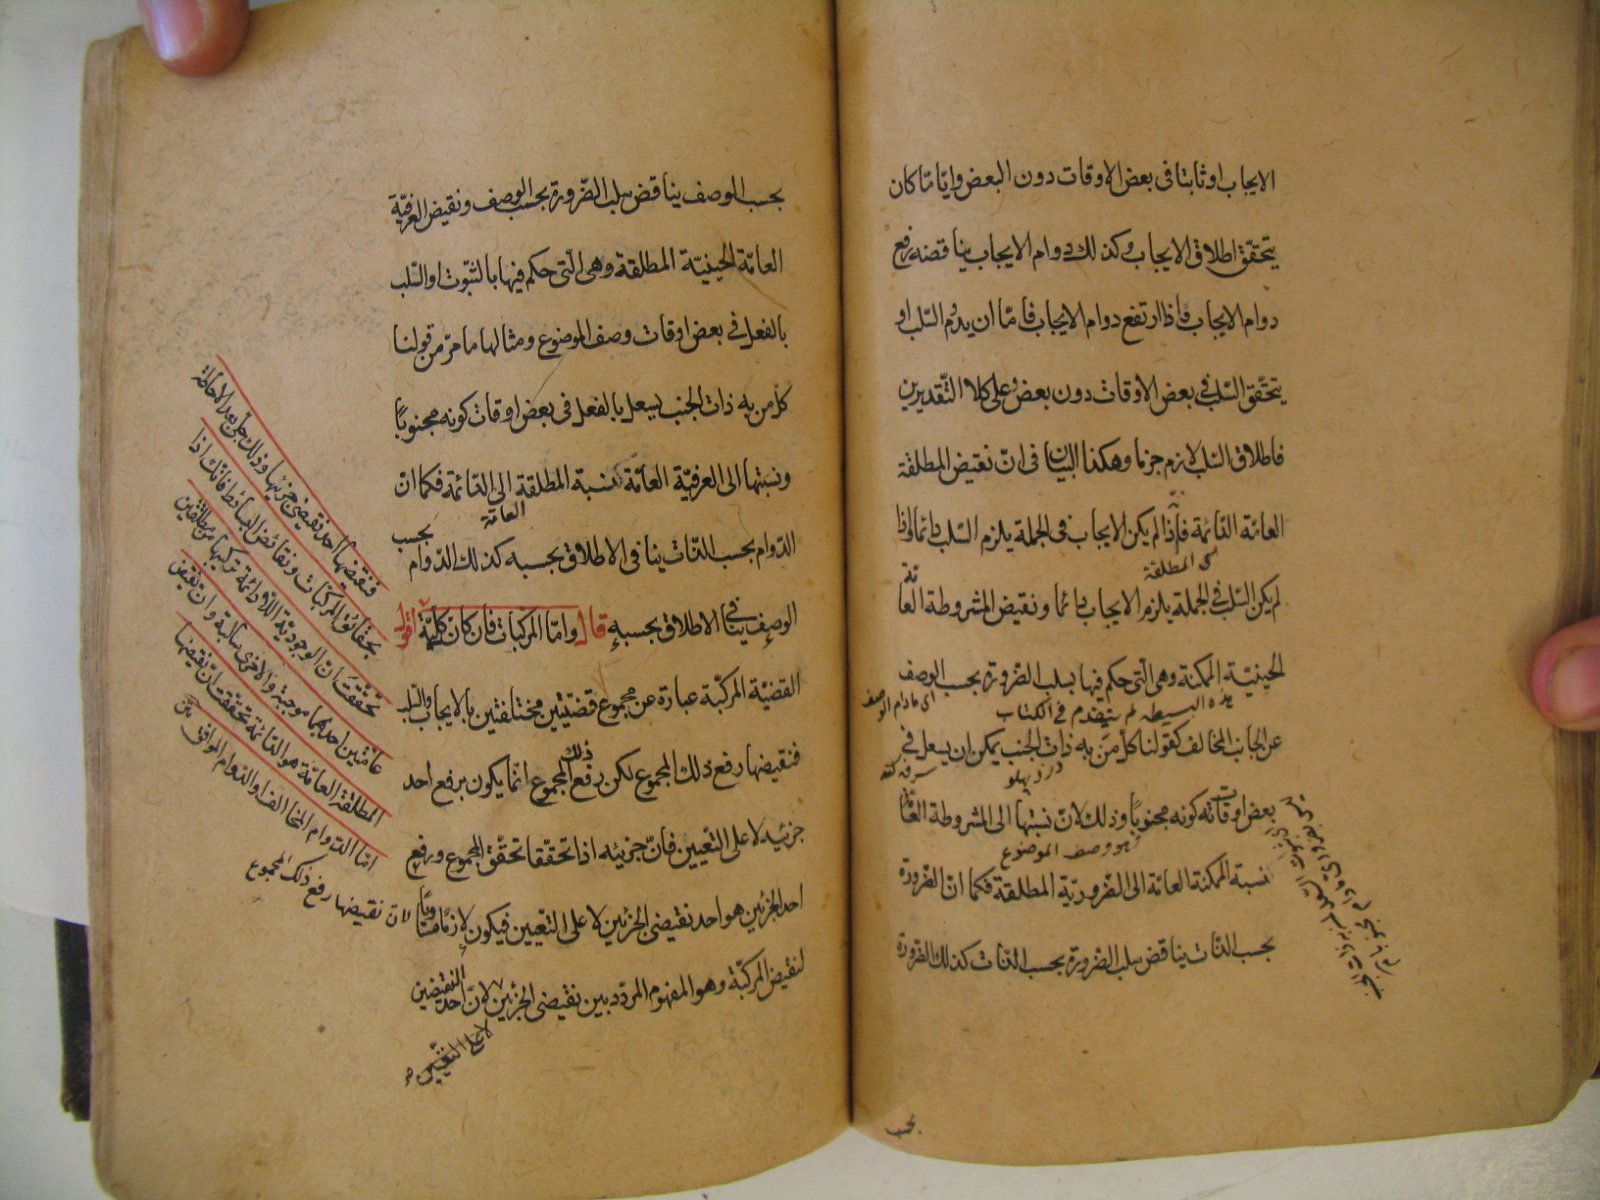 الايجاب او ثابتا فى بعض الاوقات دون البعض وايّا مّا كان
يتحقّق اطلاق الايجاب وكذلك دوام الايجاب يناقضه رفع
دوام الايجاب فاذا ارتفع دوام الايجاب فامّا ان يدوم السّلب او
يتحقّق السّلب فى بعض الاوقات دون بعض وعلى كلا التّقديرين
فاطلاق السّلب لازم جزما وهكذا البيان فى انّ نقيض المطلقة
العامّة الدّائمة فاذا لم يكن الايجاب فى الجملة يلزم السّلب دائما واذا
اى المطلقة
لم يكن السّلب فى الجملة يلزم الايجاب دائما ونقيض المشروطة العامّة
الحينيّة الممكنة وهى الّتى حكم فيها بسلب الضّرورة بحسب الوصف
اى مادام الوصف
هذه البسيطه لم يتقدم فى الكتاب
عن الجانب المخالف كقولنا كلّ من به ذات الجنب يمكن ان يسعل فى
سرفه كند
درد پهلو
بعض اوقات كونه مجنوبا وذلك لانّ نسبتها الى المشروطة العامّة
هو وصف الموضوع
نسبة الممكنة العامّة الى الضّروريّة المطلقة فكما انّ الضّرورة
بحسب الذّات يناقض سلب الضّرورة بحسب الذّات كذلك الضّرورة
بحسب
بحسب الوصف يناقض سلب الضّرورة بحسب الوصف ونقيض العرفيّة
العامّة الحينيّة المطلقة وهى الّتى حكم فيها بالثّبوت او السّلب
بالفعل فى بعض اوقات وصف الموضوع ومثالها ما مرّ من قولنا
كلّ من به ذات الجنب يسعل بالفعل فى بعض اوقات كونه مجنوباً
ونسبتها الى العرفيّة العامّة كنسبة المطلقة الى الدّائمة فكما انّ
العامّة
الدّوام بحسب الذّات ينافى الاطلاق بحسبه كذلك الدّوام بحسب
الوصف ينافى الاطلاق بحسبه قال وامّا المركبات فان كان كليّة اقول
القضيّة المركبّة عبارة عن مجموع قضيّتين مختلفتين بالايجاب والسّلب
فنقيضها رفع ذلك المجموع لكن رفع ذلك المجموع انّما يكون برفع احد
جزئيه لا على التّعيين فانّ جزئيه اذا تحقّقا تحقّق المجموع ورفع
احد الجزئين هو احد نقيضى الجزئين لا على التّعيين فيكون لازمًا مساويًا
لنقيض المركبّة وهو المفهوم المردّد بين نقيضى الجزئين لانّ احد النقيضين
لا على التعيّين
فنقيضها احد نقيضى جزئيها وذلك جلى بعد الاحاطة
بحقائق المركبات ونقائض البسائط فانّك اذا
تحقّقت انّ الوجوديّة اللّا دائمة تركيبها من مطلقتين
عامّتين احديهما موجبة والاخرى سالبة وان نقيض
المطلقة العامّة هو الدّائمة تحققت انّ نقيضها
امّا الدّوام المخالف او الدّوام الموافق
لان نقيضها رفع ذلك المجموع